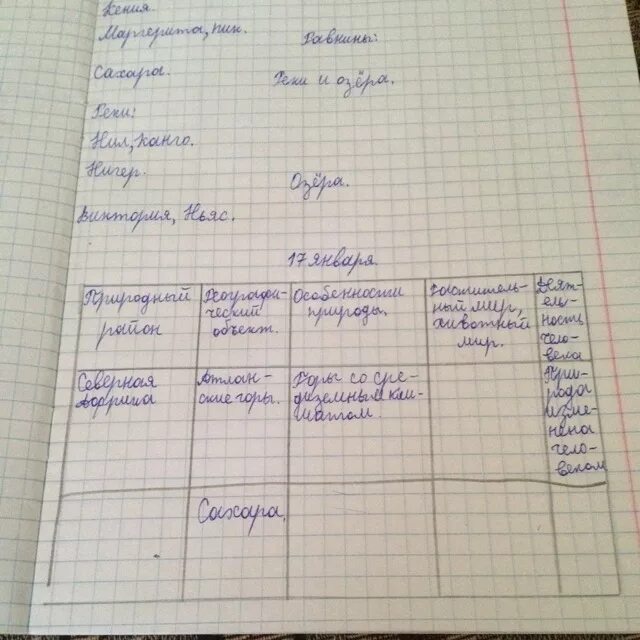 Кения.
Маргерита, пик.
Равнины:
Сахара.
Реки и озёра.
Реки:
Нил, Канго.
Нигер.
Озёра.
Виктория, Ньяс.
17 января
Природный
район
Географи-
ческий
объект.
Особенности
природы.
Раститель-
ный мир,
животный
мир.
Деят-
ель-
ность
чело-
века
Северная
Африка
Атлан-
ские горы.
Горы со сре-
диземным кли-
матом
При-
рода
изме-
нена
чело-
веком
Сахара.